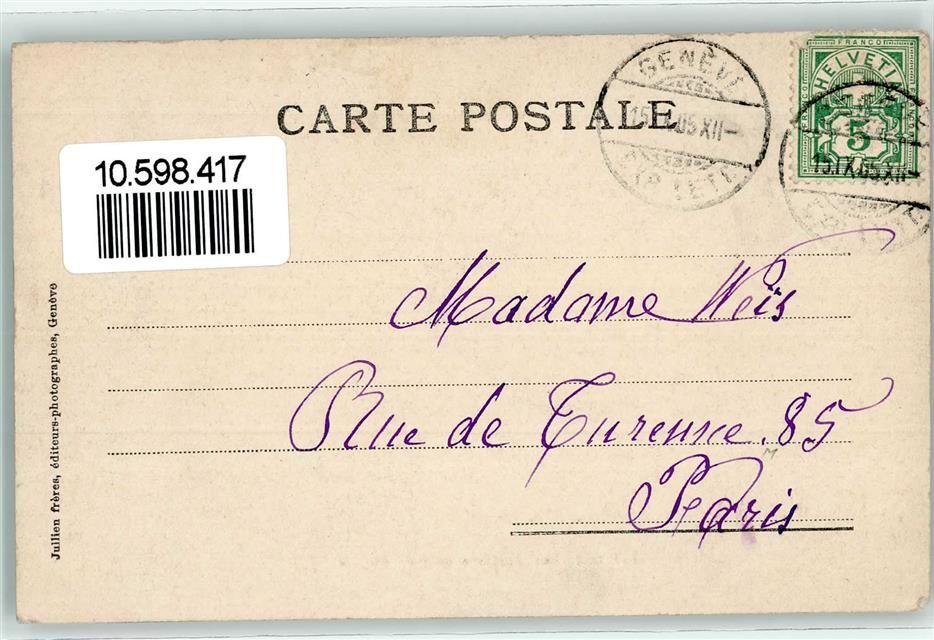 CARTE POSTALE
GENÈVE
15.IX.05 XII-
EXP. LETT.
FRANCO
HELVETIA
5
15.IX.05 XII-
10.598.417
Madame Weis
Rue de Turenne. 85
Paris
Jullien frères, éditeurs-photographes, Genève